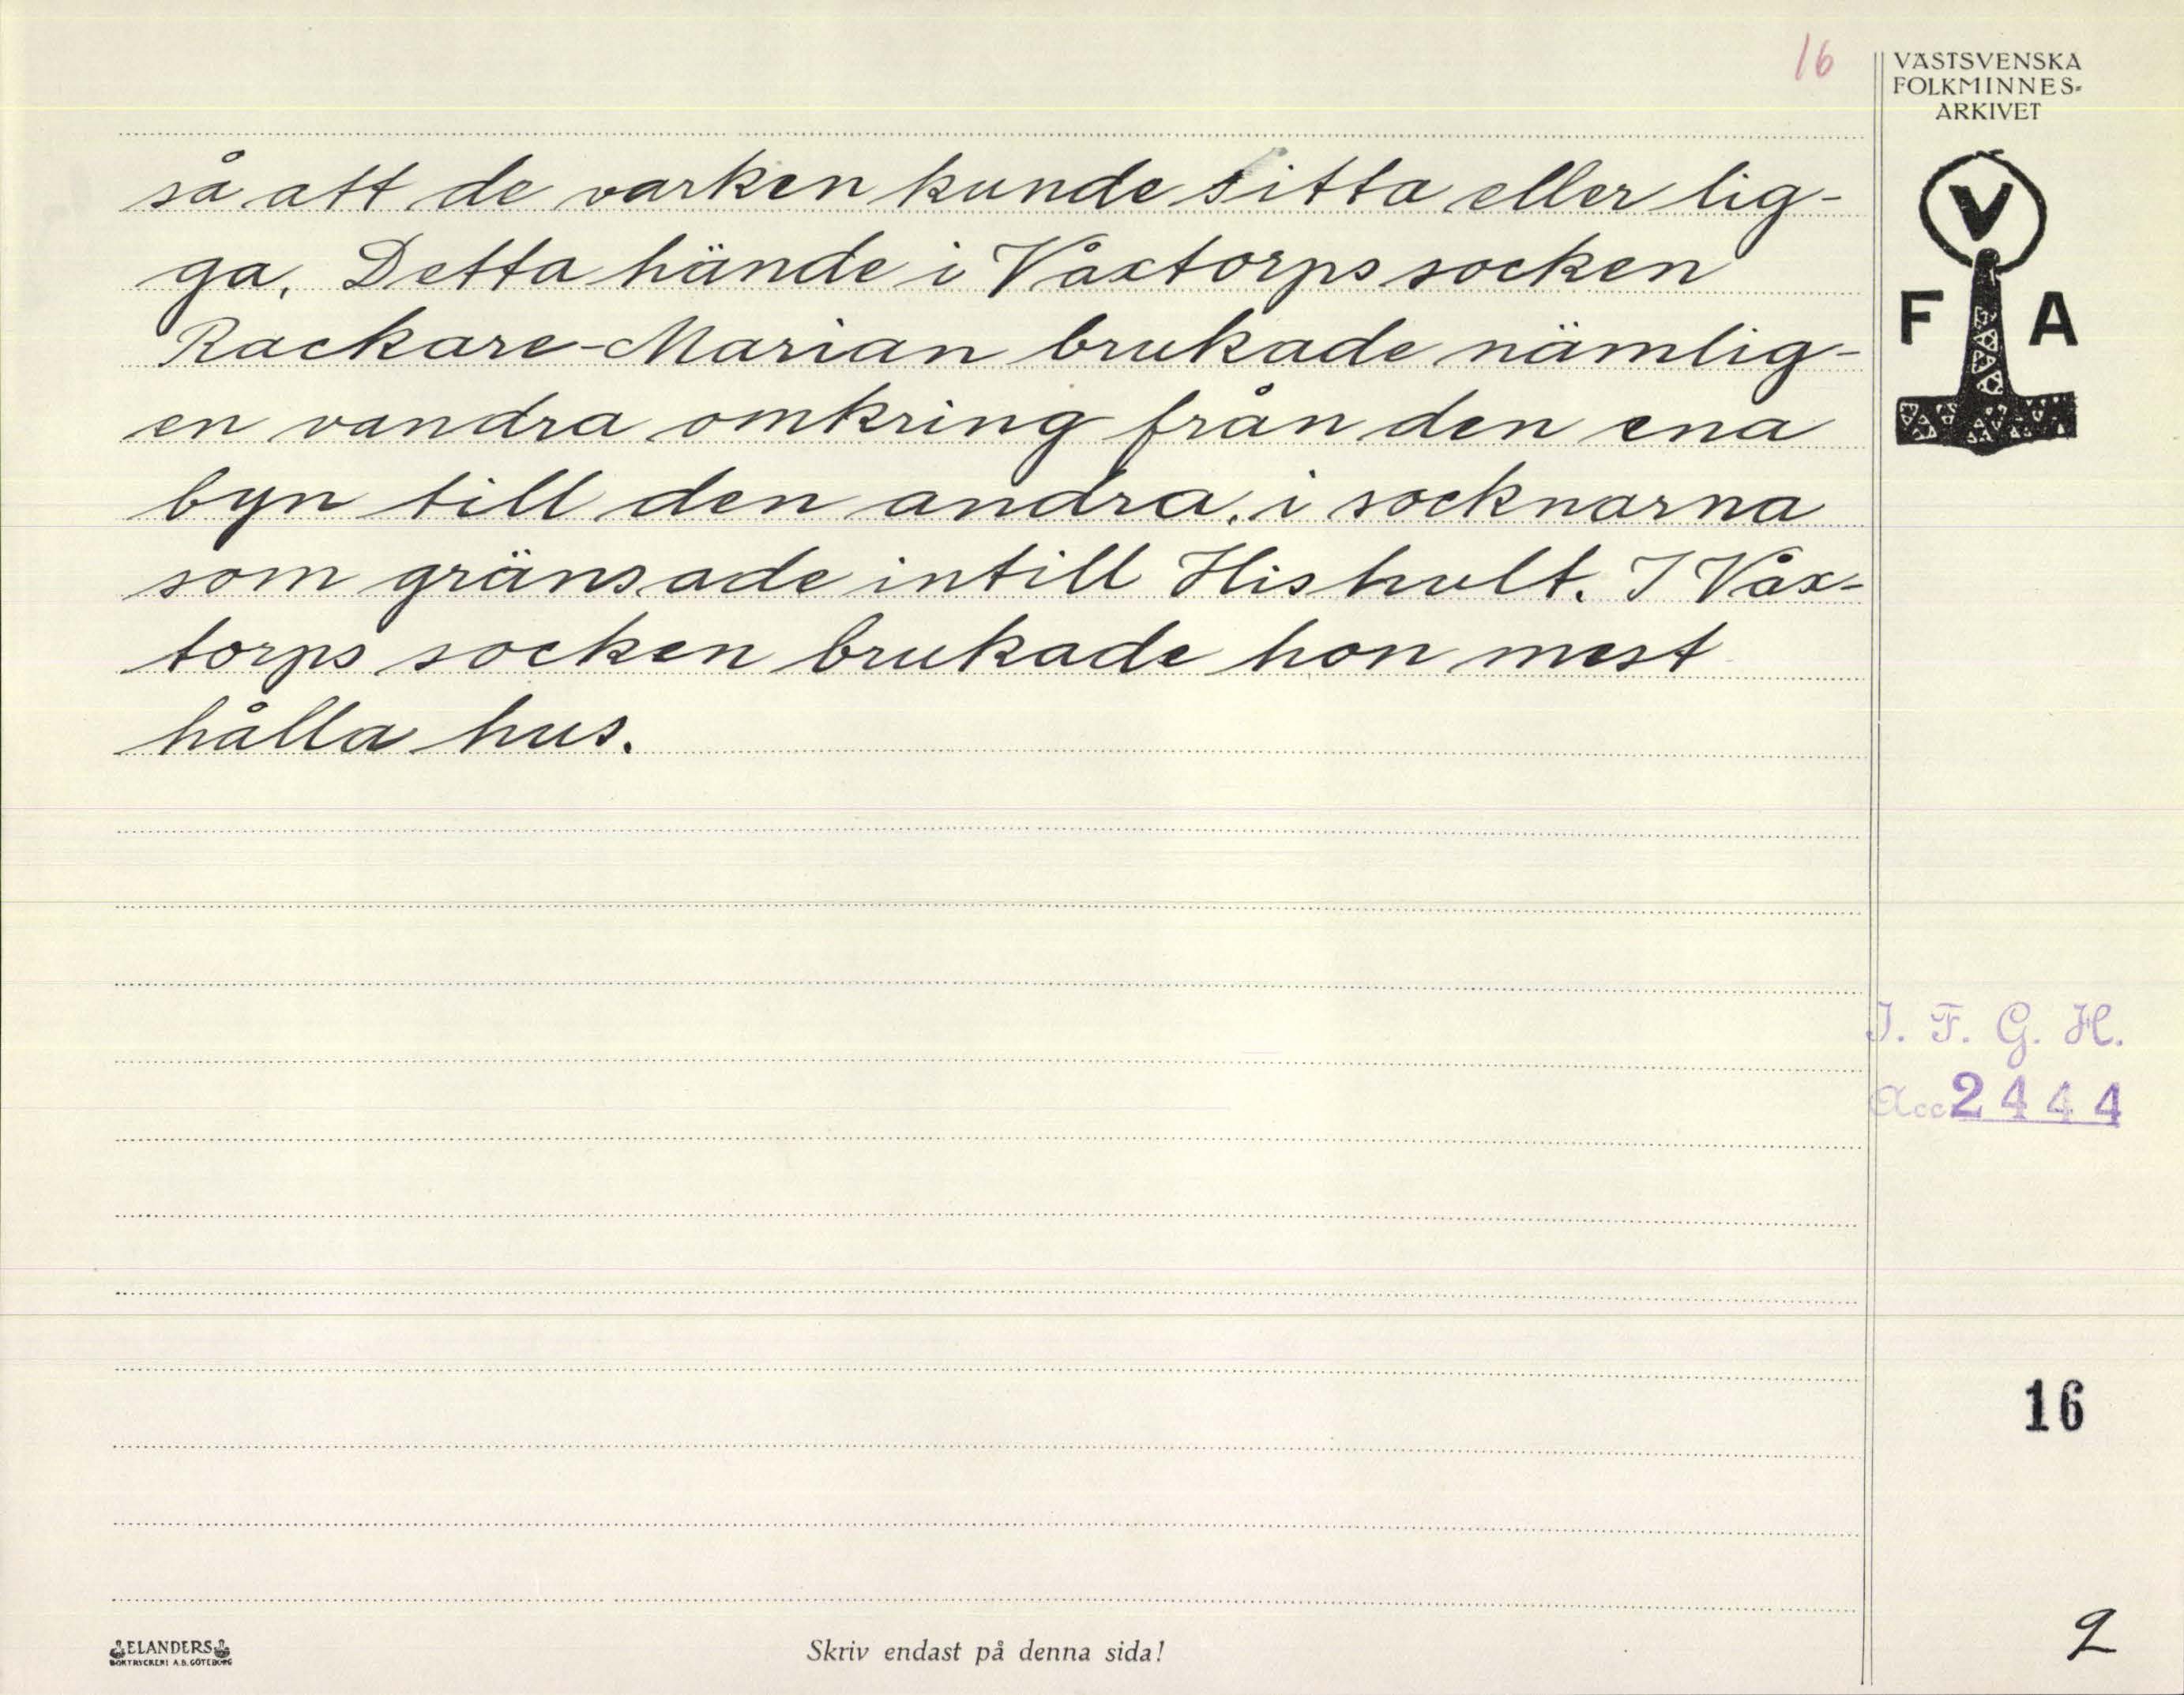 16
VÄSTSVENSKA
FOLKMINNES-
ARKIVET
V
F A
så att de varken kunde sitta eller lig-
ga. Detta hände i Våxtorps socken
Rackare-Marian brukade nämlig-
en vandra omkring från den ena
byn till den andra, i socknarna
som gränsade intill Hishult. I Våx-
torps socken brukade hon mest
hålla hus.
I. F. G. H.
Acc 2444
16
2
ELANDERS
BOKTRYCKERI A.B. GÖTEBORG
Skriv endast på denna sida!